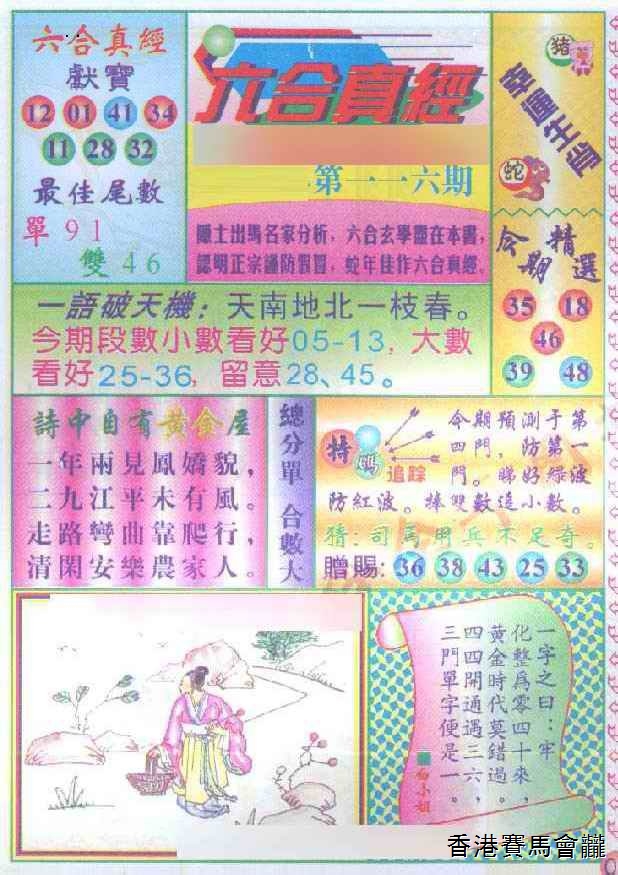 六合真經
獻寶
12 01 41 34
11 28 32
最佳尾數
單 91
雙 46
六合真經
第一一六期
隱士出馬名家分析,六合玄學盡在本書,
認明正宗謹防假冒,蛇年佳作六合真經。
猪
蛇
今期精選
35 18
46
39 48
一語破天機:天南地北一枝春。
今期段數小數看好05-13,大數
看好25-36,留意28、45。
詩中自有黃金屋
一年兩見鳳嬌貌,
二九江平未有風。
走路彎曲靠爬行,
清閑安樂農家人。
總分單 合數大
特碼
追踪
今期預測于第
四門,防第一
門。睇好綠波
防紅波。捧雙數追小數。
猜:司馬用兵不足奇。
贈賜: 36 38 43 25 33
一字之曰:牢
化整爲零四十來,
黃金時代莫錯過。
四四開通遇三六,
三門單字便是一。
白小姐
香港賽馬會